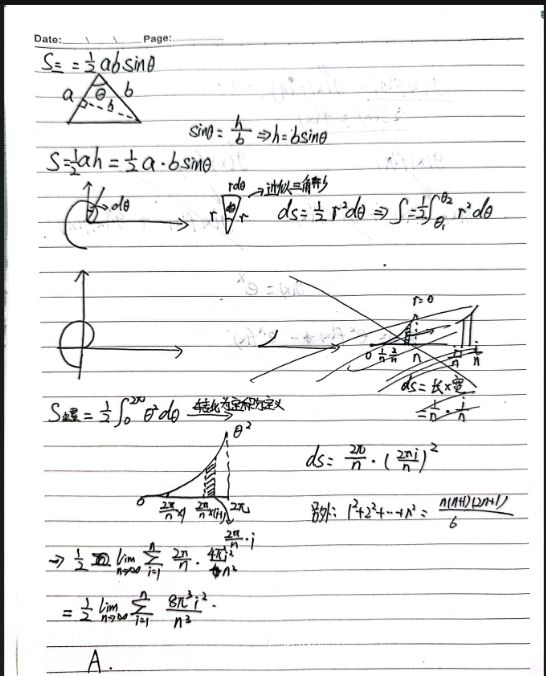 Date: \ \ Page:
S= = 1/2 ab sinθ
a θ b
h
sinθ = h/b ⇒ h = b sinθ
S = 1/2 ah = 1/2 a · b sinθ
dθ
rdθ → 近似三角形
r dθ r
ds = 1/2 r² dθ ⇒ S = 1/2 ∫_θ₁^θ₂ r² dθ
r = θ
0 1/n 2/n n i/n
ds = 长×宽
= 1/n · i/n
S螺 = 1/2 ∫_0^2π θ² dθ 转化为定积分定义
θ²
ds = 2π/n · (2πi/n)²
0 2π/n ×1 2π/n ×(i-1) 2π
2π/n · i
另外: 1²+2²+···+n² = n(n+1)(2n+1)/6
→ 1/2 lim n→∞ Σ i=1 n 2π/n · 4π²i²/n²
= 1/2 lim n→∞ Σ i=1 n 8π³i²/n³ .
A.